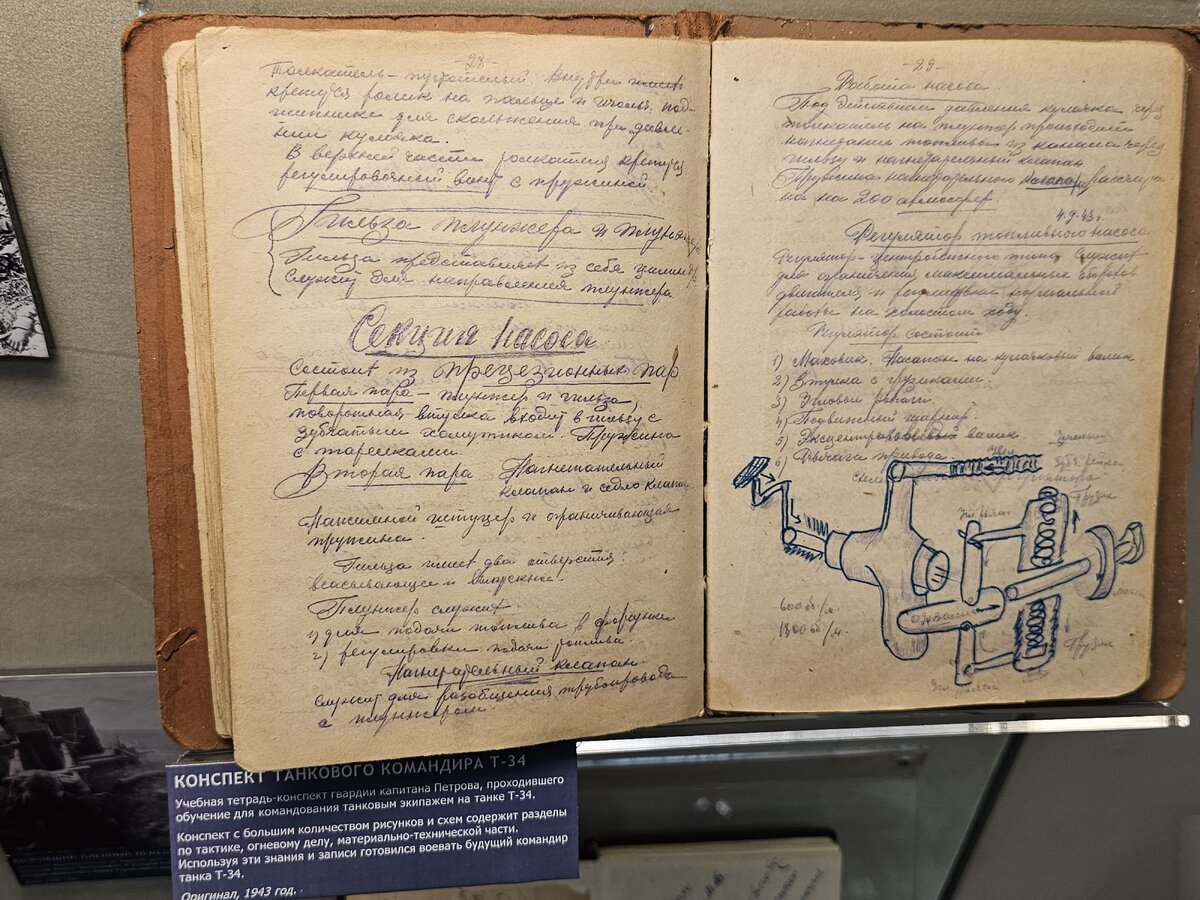 -28-
Толкатель - пустотелый. Внутри имеет
крепится ролик на пальце и игольч. под-
шипнике для скольжения при давле-
нии кулачка.
В верхней части толкателя крепится
регулировочный винт с пружиной.
Гильза плунжера и плунжер
Гильза представляет из себя цилиндр
Служит для направления плунжера
Секция насоса
Состоит из прецезионных пар
Первая пара - плунжер и гильза,
поворотная втулка входит в гильзу с
зубчатым хомутиком. Пружина
с тарелками.
Вторая пара Нагнетательный
клапан и седло клапана
Нажимной штуцер и ограничивающая
пружина.
Гильза имеет два отверстия:
всасывающее и выпускное.
Плунжер служит
1) для подачи топлива в форсунки
2) регулировки подачи топлива.
Нагнетательный клапан.
служит для разобщения трубопровода
с плунжером.
-29-
Работа насоса.
Под действием давления кулачка через
толкатель на плунжер происходит
нагнетание топлива из канала через
гильзу и нагнетательный клапан.
Пружина нагнетательного клапана рассчита
на на 200 атмосфер.
4.9.43г.
Регулятор топливного насоса
Регулятор - центробежного типа. Служит
для ограничения максимальных оборотов
двигателя и регулировки нормальной
работы на холостом ходу.
Регулятор состоит
1) Маховик. Насажен на кулачковый валик
2) Втулка с грузиками.
3) Угловые рычаги.
4) Подвижный шарнир.
5) Эксцентриковый валик
6) Рычаги привода
Схема регулятора
Зубч. рейка
Грузик
Угл. рычаг
600 об/м.
1800 об/м.
Грузик
Угл. рычаг
КОНСПЕКТ ТАНКОВОГО КОМАНДИРА Т-34
Учебная тетрадь-конспект гвардии капитана Петрова, проходившего
обучение для командования танковым экипажем на танке Т-34.
Конспект с большим количеством рисунков и схем содержит разделы
по тактике, огневому делу, материально-технической части.
Используя эти знания и записи готовился воевать будущий командир
танка Т-34.
Оригинал, 1943 год.